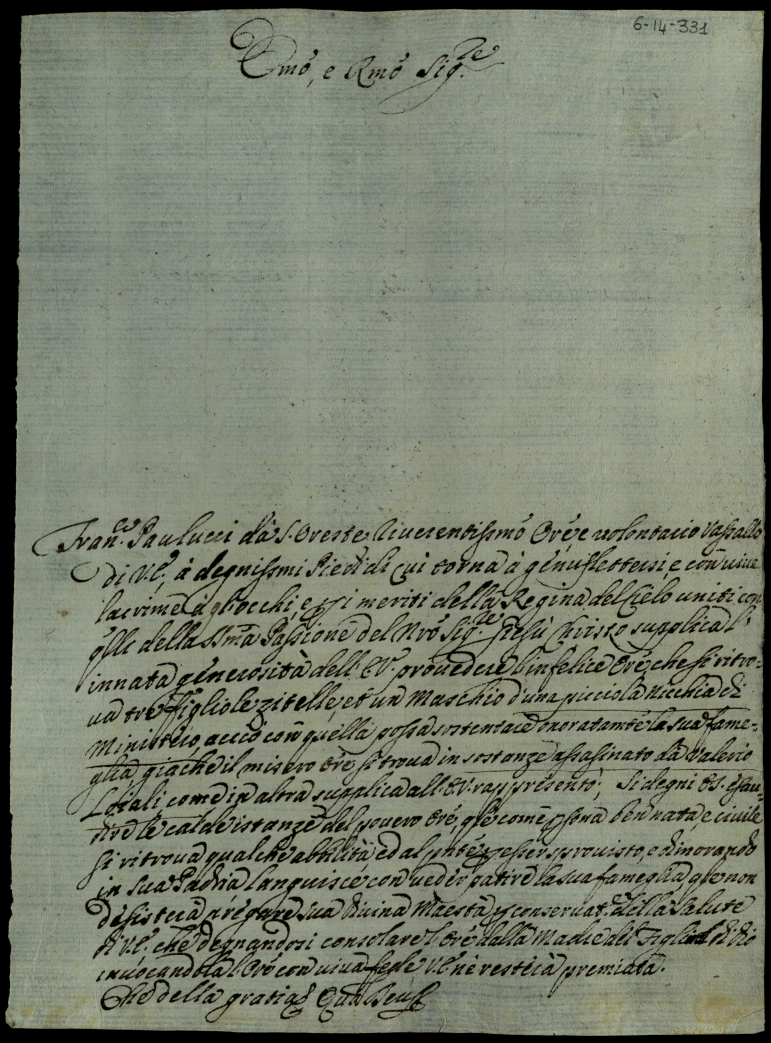 6-14-331
Emo, e Rmo Sig.re
Fran.co Paulucci da S. Oreste riverentissimo Ore e volontario Vassallo
di V.E., à degnissmi Piedi di cui torna à genuflettersi, e con vive
lacrime à gl'occhi e p i meriti della Regina del Cielo uniti con
qlli della SSma Passione del Nro Sig.re Giesù Christo supplica l'
innata generosità dell'E.V. provedere l'infelice Ore, che si ritro-
va tre figliole zitelle, et un Maschio d'una picciola nicchia di
Ministerio, acciò con quella possa sostentare onoratamte la sua fame-
glia, giache il misero Ore si trova in sostanze assassinato da Valerio
come in altra supplica all'E.V. rappresentò; Si degni E.S. esau-
dire le calde istanze del povero Ore, qle come psona ben nata, e civile
si ritrova qualche abbilità ed al pnte p esser sprovisto, e dimorando
in sua Padria languisce con veder patire la sua fameglia, che non
desisterà pregare Sua Divina Maestà p conservat.e della Salute
di V.E. che degnandosi consolare l'Ore dalla Madre del Figlio di Dio
invocandola l'Ore con viva fede V.E. ne resterà premiata.
Che della gratia Quam Deus